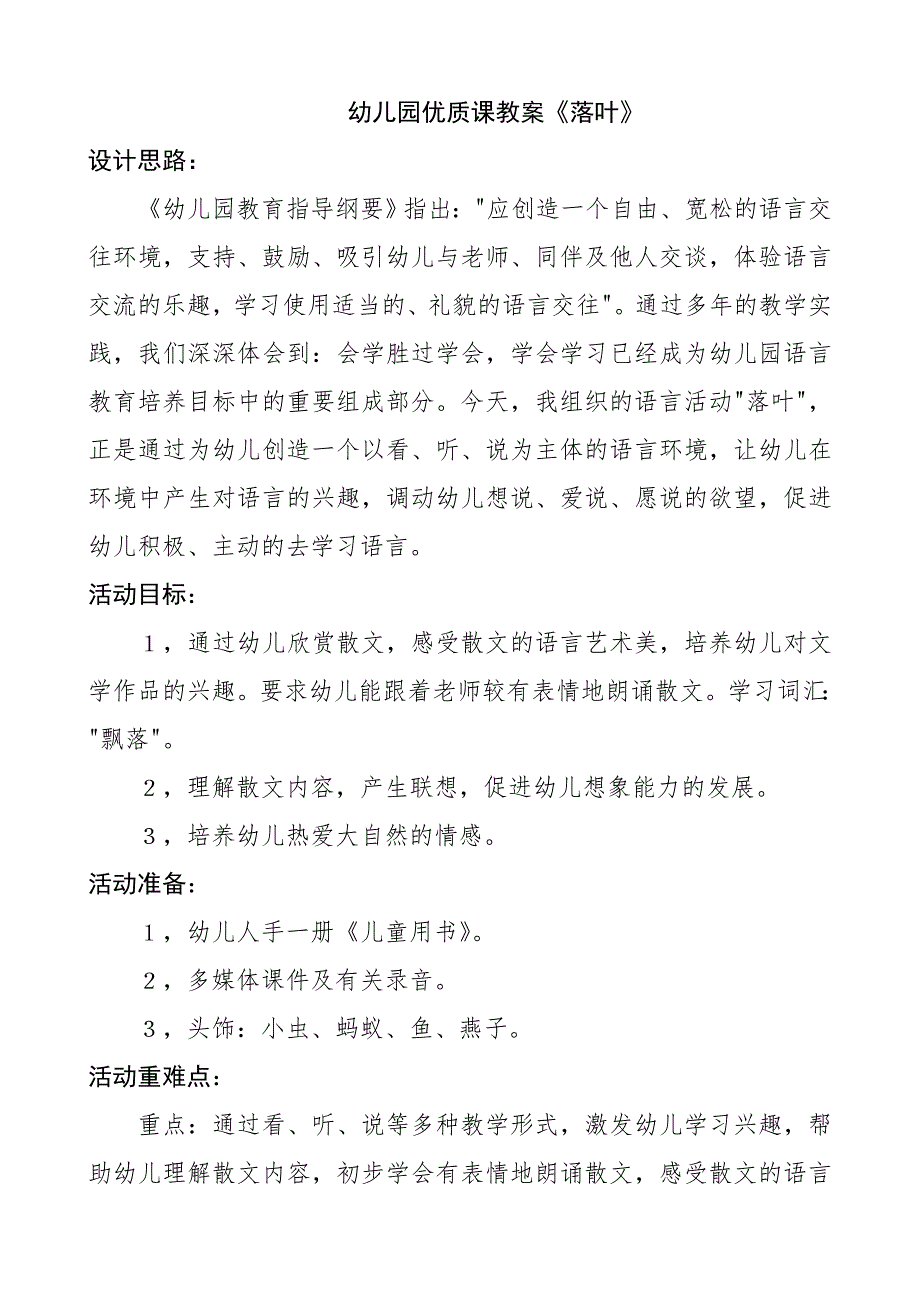 幼儿园优质课教案《落叶》
设计思路：
《幼儿园教育指导纲要》指出："应创造一个自由、宽松的语言交
往环境，支持、鼓励、吸引幼儿与老师、同伴及他人交谈，体验语言
交流的乐趣，学习使用适当的、礼貌的语言交往"。通过多年的教学实
践，我们深深体会到：会学胜过学会，学会学习已经成为幼儿园语言
教育培养目标中的重要组成部分。今天，我组织的语言活动"落叶"，
正是通过为幼儿创造一个以看、听、说为主体的语言环境，让幼儿在
环境中产生对语言的兴趣，调动幼儿想说、爱说、愿说的欲望，促进
幼儿积极、主动的去学习语言。
活动目标：
１，通过幼儿欣赏散文，感受散文的语言艺术美，培养幼儿对文
学作品的兴趣。要求幼儿能跟着老师较有表情地朗诵散文。学习词汇：
"飘落"。
２，理解散文内容，产生联想，促进幼儿想象能力的发展。
３，培养幼儿热爱大自然的情感。
活动准备：
１，幼儿人手一册《儿童用书》。
２，多媒体课件及有关录音。
３，头饰：小虫、蚂蚁、鱼、燕子。
活动重难点：
重点：通过看、听、说等多种教学形式，激发幼儿学习兴趣，帮
助幼儿理解散文内容，初步学会有表情地朗诵散文，感受散文的语言